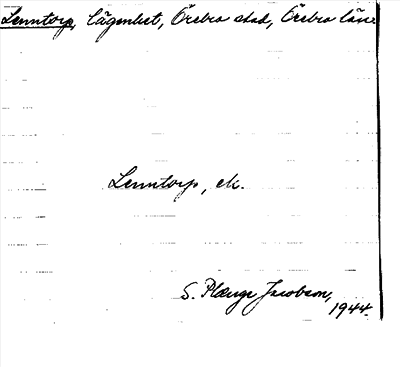 Lenntorp, Lägenhet, Örebro stad, Örebro län
Lenntorp, ek.
S. Plænge Jacobson,
1944.